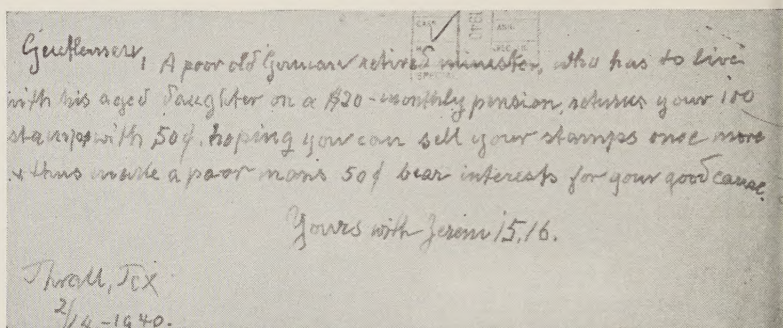 CASH
1940
SPECIAL
Gentlemen, A poor old German retired minister, who has to live
with his aged daughter on a $20-monthly pension, returns your 100
stamps with 50¢, hoping you can sell your stamps once more
& thus make a poor mans 50¢ bear interests for your good cause.
Yours with Jerem 15,16.
Thrall, Tex
2/14-1940.